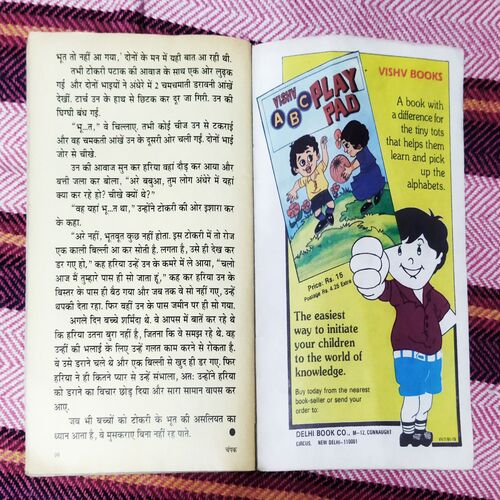 भूत तो नहीं आ गया,' दोनों के मन में यही बात आ रही थी.
तभी टोकरी पटाक की आवाज के साथ एक ओर लुढ़क
गई और दोनों भाइयों ने अंधेरे में 2 चमचमाती डरावनी आंखें
देखीं. टार्च उन के हाथ से छिटक कर दूर जा गिरी. उन की
घिग्घी बंध गई.
"भू...त," वे चिल्लाए. तभी कोई चीज उन से टकराई
और वह चमकती आंखें उन के दूसरी ओर चली गईं. दोनों भाई
जोर से चीखे.
उन की आवाज सुन कर हरिया वहां दौड़ कर आया और
बत्ती जला कर बोला, "अरे बबुआ, तुम लोग अंधेरे में यहां
क्या कर रहे हो? चीखे क्यों थे?"
"वह यहां भू...त था," उन्होंने टोकरी की ओर इशारा कर
के कहा.
"अरे नहीं, भूतवूत कुछ नहीं होता. इस टोकरी में तो रोज
एक काली बिल्ली आ कर सोती है. लगता है, उसे ही देख कर
डर गए हो," कह कर हरिया उन्हें उन के कमरे में ले आया, "चलो
आज मैं तुम्हारे पास ही सो जाता हूं," कह कर हरिया उन के
बिस्तर के पास ही बैठ गया और जब तक वे सो नहीं गए, उन्हें
थपकी देता रहा. फिर वहीं उन के पास जमीन पर ही सो गया.
अगले दिन बच्चे शर्मिंदा थे. वे आपस में बातें कर रहे थे
कि हरिया उतना बुरा नहीं है, जितना कि वे समझ रहे थे. वह
उन्हीं की भलाई के लिए उन्हें गलत काम करने से रोकता है.
वे उसे डराने चले थे और एक बिल्ली से खुद ही डर गए. फिर
हरिया ने ही कितने प्यार से उन्हें संभाला, अतः उन्होंने हरिया
को डराने का विचार छोड़ दिया और सारा सामान वापस कर
आए.
जब भी बच्चों को टोकरी के भूत की असलियत का
ध्यान आता है, वे मुसकराए बिना नहीं रह पाते.
चंपक
VISHV BOOKS
VISHV
ABC PLAY
PAD
A book with
a difference for
the tiny tots
that helps them
learn and pick
up the
alphabets.
Price: Rs. 15
Postage Rs. 4.25 Extra
The easiest
way to initiate
your children
to the world of
knowledge.
Buy today from the nearest
book-seller or send your
order to:
DELHI BOOK CO., M-12, CONNAUGHT
CIRCUS, NEW DELHI-110001